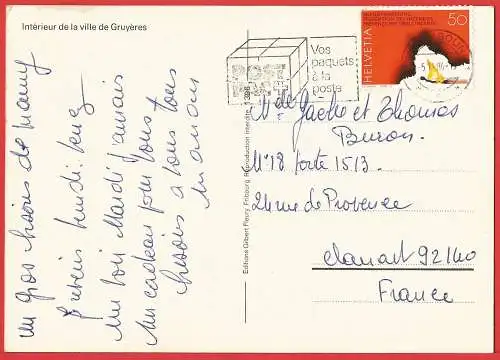 Intérieur de la ville de Gruyères
un gros bisous de mamy
Je reviens lundi. tenez
un bon Mardi j'aurais
un cadeau pour vous
bisous a vous tous
maman
Editions Gilbert Fleury, Fribourg. Reproduction interdite. 1396
Vos
paquets
à la
poste
HELVETIA
50
et Thomas
Buron
N°18 Porte 1513
24 rue de Provence
Clamart 92140
France